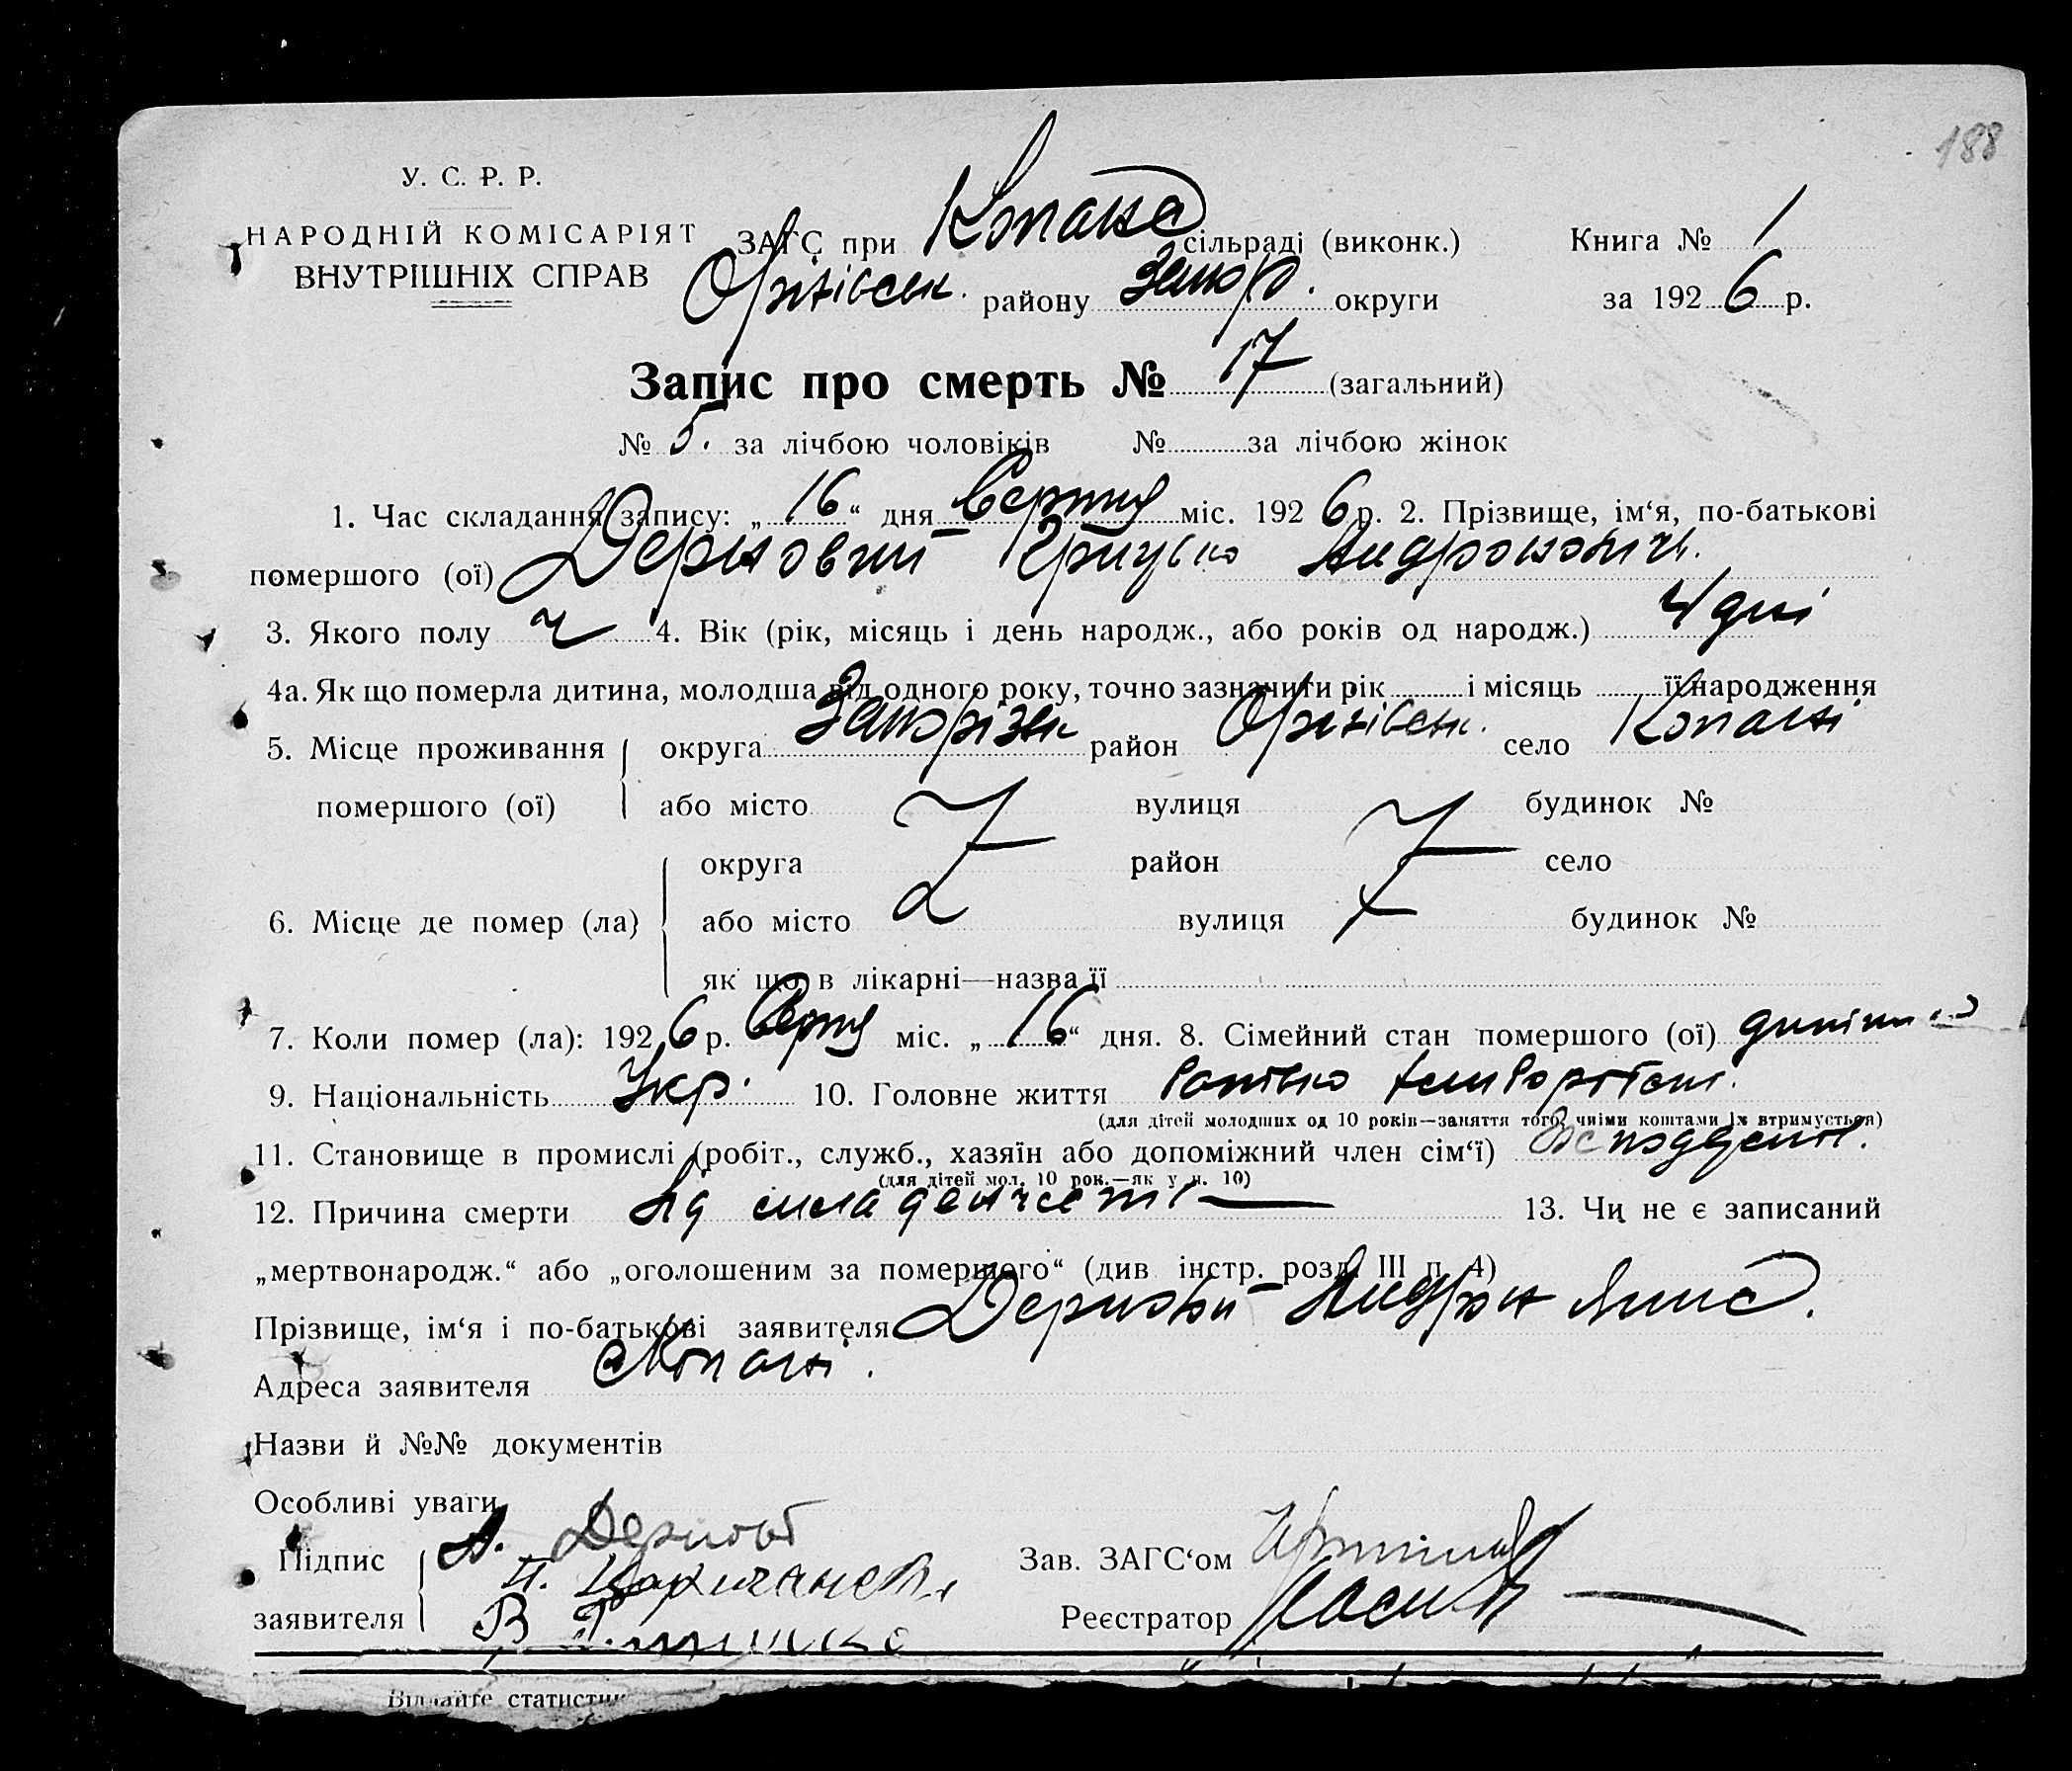 188
У. С. Р. Р.
НАРОДНІЙ КОМІСАРІЯТ
ВНУТРІШНІХ СПРАВ
ЗАГС при Копане сільраді (виконк.)
Оріхівськ. району Запор. округи
Книга № 1
за 1926 р.
Запис про смерть № 17 (загальний)
№ 5. за лічбою чоловіків № за лічбою жінок
1. Час складання запису: „16“ дня Серпня міс. 1926 р. 2. Прізвище, ім‘я, по-батькові
помершого (ої) Дерновий Грицько Андронович.
3. Якого полу ч 4. Вік (рік, місяць і день народж., або років од народж.) 4 дні
4а. Як що померла дитина, молодша від одного року, точно зазначити рік і місяць її народження
5. Місце проживання помершого (ої) округа Запоріжк район Оріхівськ. село Копані
або місто вулиця будинок №
6. Місце де помер (ла) округа район село
або місто вулиця будинок №
як що в лікарні—назва її
7. Коли помер (ла): 1926 р. Серпня міс. „16“ дня. 8. Сімейний стан помершого (ої)
9. Національність Укр. 10. Головне життя батько
(для дітей молодших од 10 років—заняття того, чиїми коштами їх втримується)
11. Становище в промислі (робіт., служб., хазяїн або допоміжний член сім‘ї)
(для дітей мол. 10 рок.—як у п. 10)
12. Причина смерти Від младенчества 13. Чи не є записаний
„мертвонародж.“ або „оголошеним за помершого“ (див інстр. розд. III п. 4)
Прізвище, ім‘я і по-батькові заявителя Дерновий Андрон
Адреса заявителя с Копані.
Назви й №№ документів
Особливі уваги
Підпис заявителя А. Дерновый
Зав. ЗАГС‘ом
Реєстратор
Віддайте статистич